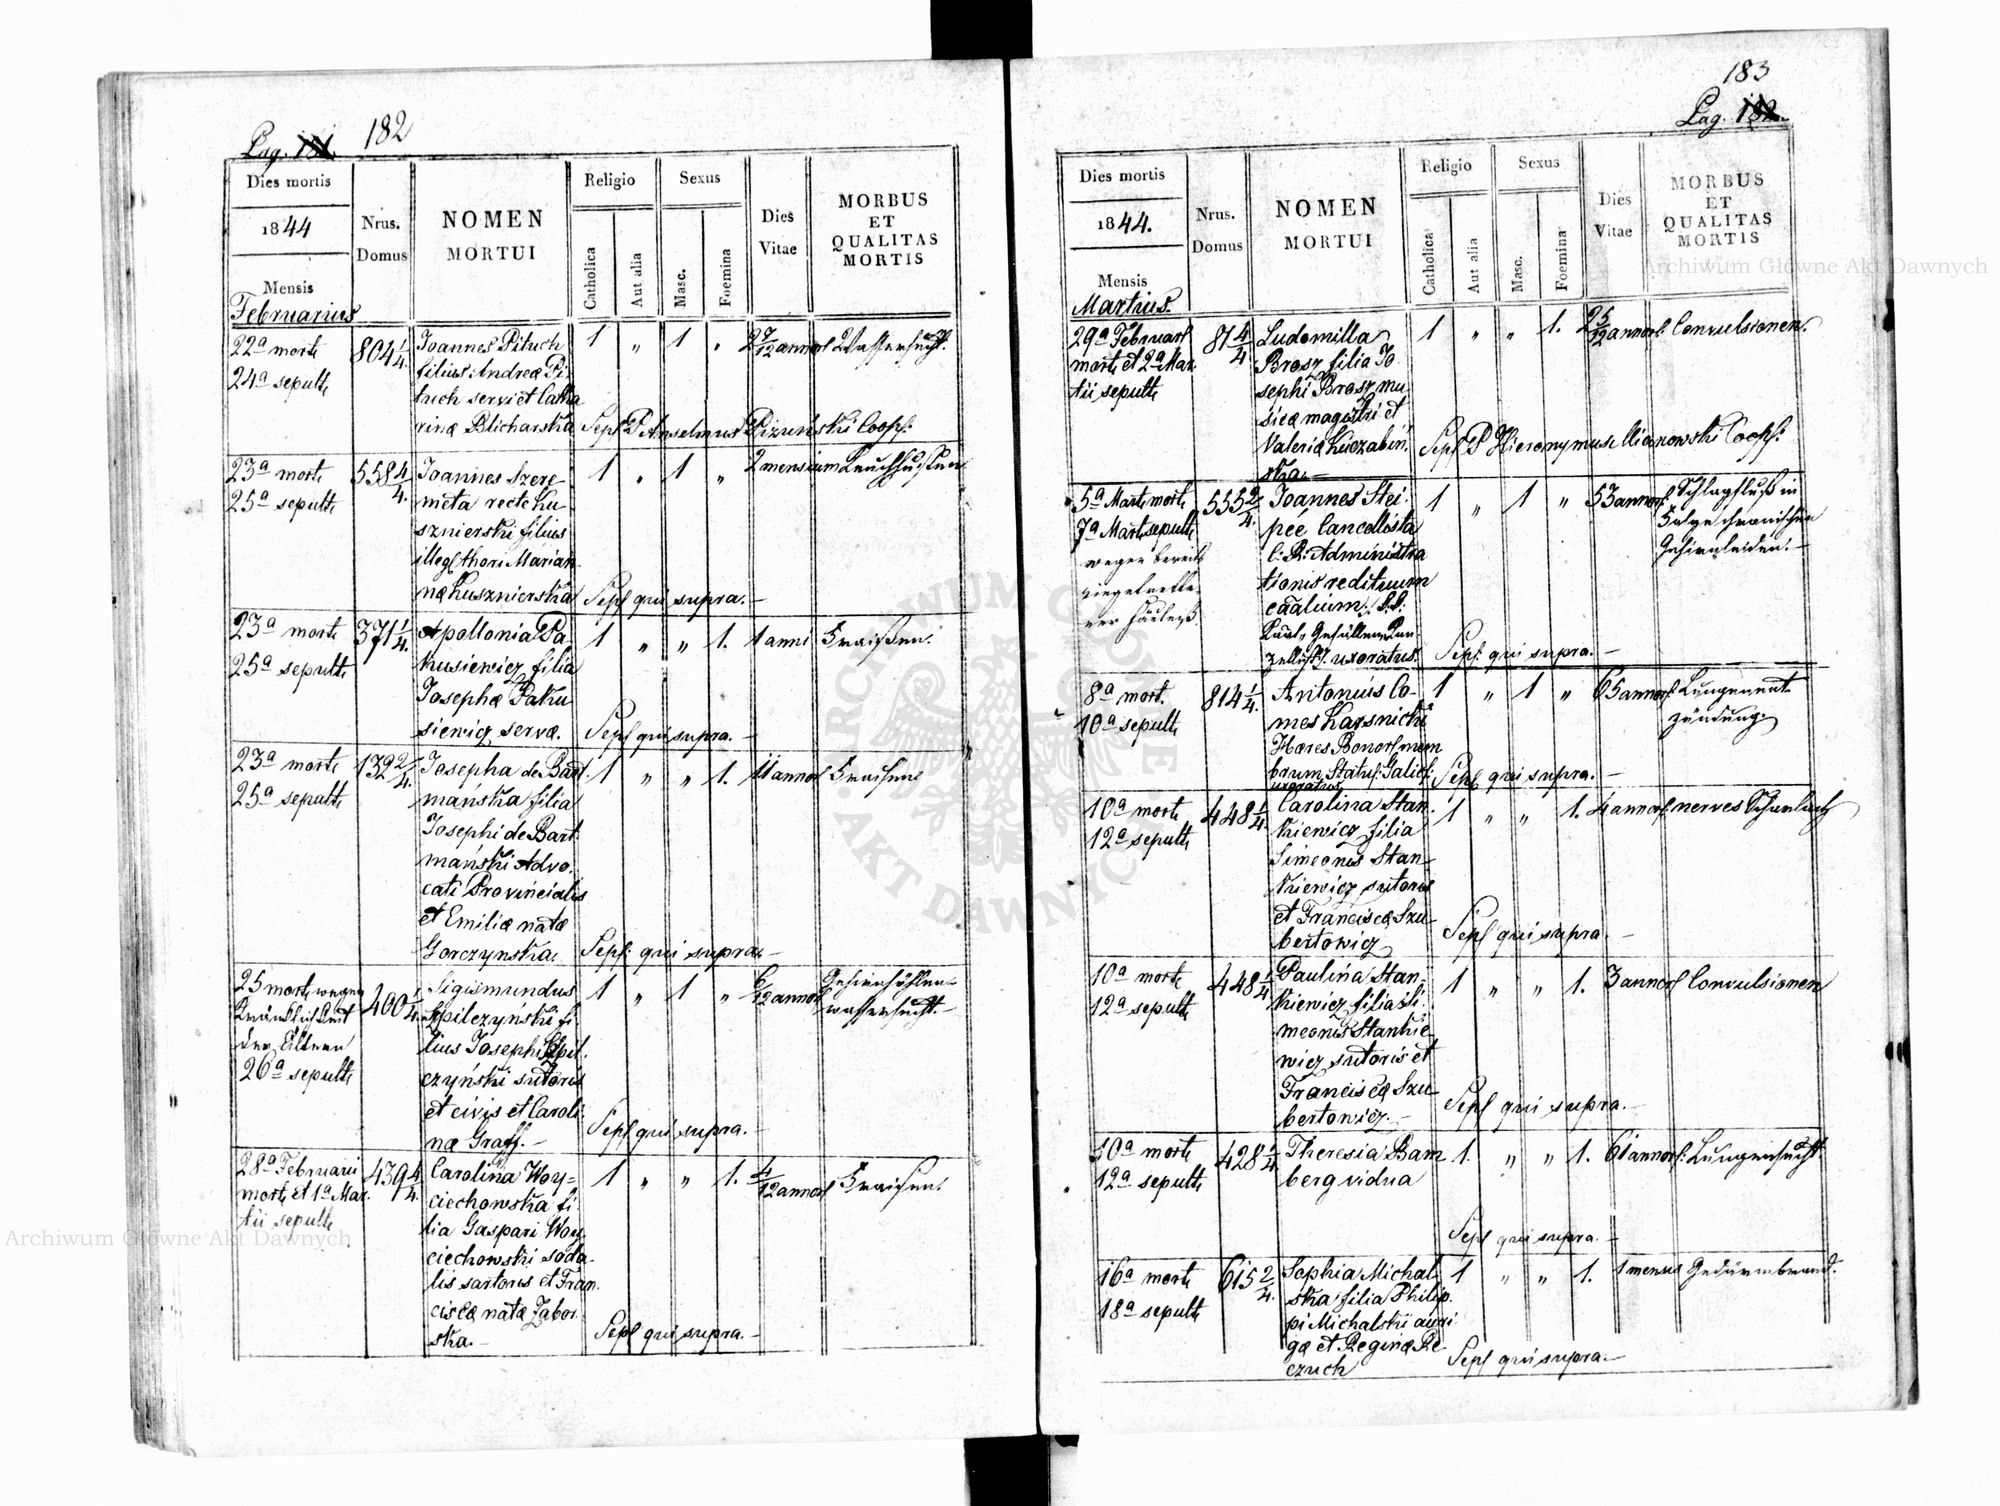 Pag. 181. 182
Dies mortis
1844
Mensis
Februarius
Nrus.
Domus
NOMEN
MORTUI
Religio
Catholica
Aut alia
Sexus
Masc.
Foemina
Dies
Vitae
MORBUS
ET
QUALITAS
MORTIS
22a morte
24a sepulte
804 1/4
Joannes Pituch
filius Andreæ Pi
tuch servi et Catha
rinæ Blicharska
1 „ 1 „
2 7/12 annor
Wassersucht.
Sepel P Anselmus Dizunski Coop:
23a morte
25a sepulte
558 4/4.
Joannes Szere
meta recte Ku
sznierski filius
illeg thori Marian
næ Kusznierska
1 „ 1 „
2 mensium
Sepel qui supra.—
23a morte
25a sepulte
371 1/4.
Apollonia Pa
kusiewicz filia
Josephæ Paku
siewicz servæ.
1 „ „ 1.
1 anni
Fraisen.
Sepel qui supra.—
23a morte
25a sepulte
132 2/4.
Josepha de Bart
mańska filia
Josephi de Bart
mański Advo
cati Provincialis
et Emiliæ natæ
Gorczynska.
1 „ „ 1.
11 annor
Fraisen
Sepel: qui supra.—
25 morte wegen
Kränklichkeit
der Ältern
26a sepulte
400 1/4.
Sigismundus
Szpilczyński fi
lius Josephi Szpil
czyński sutoris
et civis et Caroli
næ Graff.—
1 „ 1 „
6/12 annor
Gehirnhöhlen
wassersucht.—
Sepel qui supra.—
28a Februarii
morte et 1a Mar.
tii sepulte
439 4/4.
Carolina Woy=
ciechowska fi
lia Gaspari Woy
ciechowski soda
lis sartoris et Fran
ciscæ natæ Zabor
ska.—
1 „ „ 1.
4/12 annor
Fraisen.
Sepel qui supra.—
183
Pag. 182.
Dies mortis
1844.
Mensis
Martius.
Nrus.
Domus
NOMEN
MORTUI
Religio
Catholica
Aut alia
Sexus
Masc.
Foemina
Dies
Vitae
MORBUS
ET
QUALITAS
MORTIS
29a Februar
morte et 2a Mar
tii sepulte
81 4/4
Ludomilla
Brosz filia Jo
sephi Brosz mu
sicæ magistri et
Valeriæ Kuczabin
ska.—
1 „ „ 1.
2 5/12 annor
Convulsionen.
Sepel P Hieronymus Mianowski Coop:
5a Marte morte
7a Mart sepulte
wegen bereits
eingetrette
ner Fäulniß
555 2/4.
Joannes Stei
pée Cancellista
C: R: Administra
tionis redituum
caalium.
uxoratus.
1 „ 1 „
53 annor
Schlagfluß in
Folge chronischen
Gehirnleiden.—
Sepel: qui supra.—
8a mort.
10a sepulte
814 1/4.
Antonius Co
mes Karsnicki
Hæres Bonor mem
brum Statu: Galic:
uxoratus
1 „ 1 „
65 annor
Lungenent
zündung.
Sepel qui supra.—
10a morte
12a sepulte
448 1/4.
Carolina Stan
kiewicz filia
Simeonis Stan
kiewicz sutoris
et Franciscæ Szu
bertowicz
1 „ „ 1.
4 annor
nerves Scharlach
Sepel qui supra.—
10a morte
12a sepulte
448 1/4
Paulina Stan
kiewicz filia Si
meonis Stankie
wicz sutoris et
Franciscæ Szu
bertowicz.—
1 „ „ 1.
3 annor
Convulsionen
Sepel qui supra.—
10a morte
12a sepulte
428 1/4.
Theresia Bam
berg vidua
1. „ „ 1.
61 annor
Lungensucht
Sepel qui supra.—
16a morte
18a sepulte
615 2/4.
Sophia Michal
ska filia Philip
pi Michalski auri
gæ et Reginæ Re
czuch
1 „ „ 1.
1 mensis
Gedärmbrand.
Sepel qui supra.—
ARCHIWUM GŁÓWNE AKT DAWNYCH
Archiwum Główne Akt Dawnych
Archiwum Główne Akt Dawnych